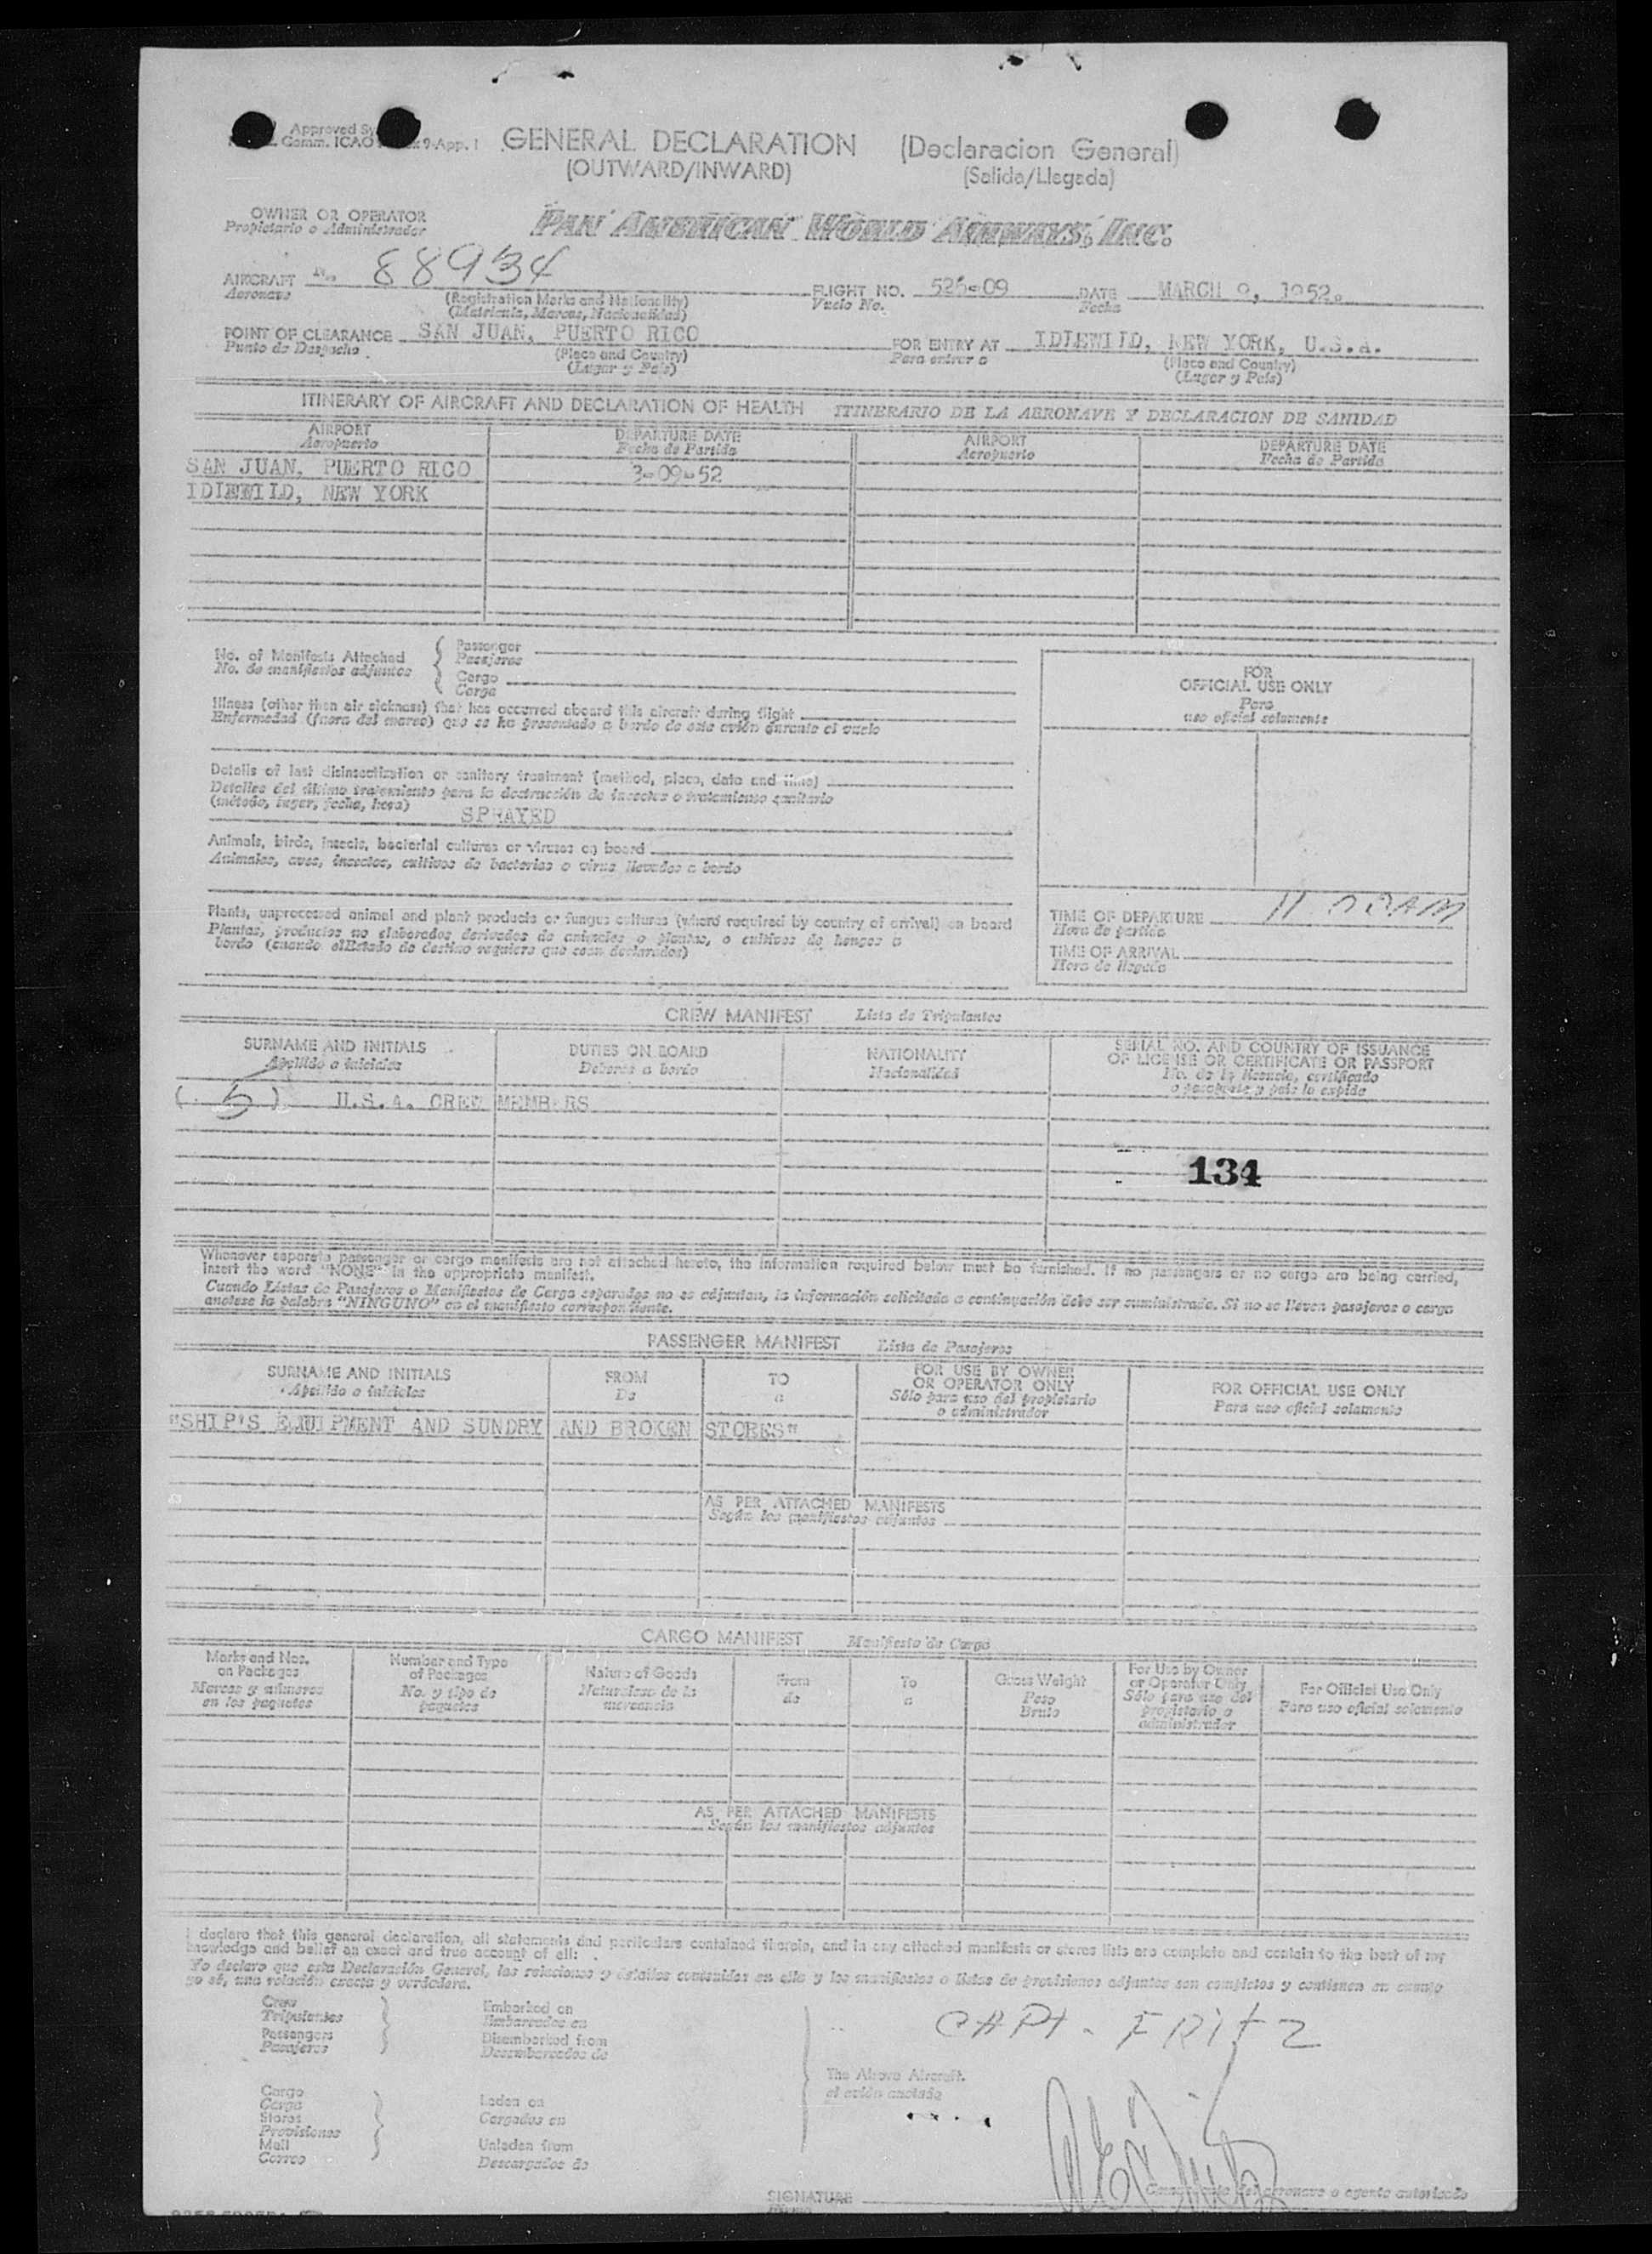 Approved By
Comm. ICAO 9-App. 1
GENERAL DECLARATION (Declaracion General)
(OUTWARD/INWARD) (Salida/Llegada)
OWNER OR OPERATOR
Propietario o Administrador
PAN AMERICAN WORLD AIRWAYS, INC.
AIRCRAFT N. 88934 FLIGHT NO. 526-09 DATE MARCH 9, 1952.
Aeronave (Registration Marks and Nationality) Vuelo No. Fecha
(Matricula, Marcas, Nacionalidad)
POINT OF CLEARANCE SAN JUAN, PUERTO RICO FOR ENTRY AT IDLEWILD, NEW YORK, U.S.A.
Punto de Despacho (Place and Country) Para entrar a (Place and Country)
(Lugar y Pais) (Lugar y Pais)
ITINERARY OF AIRCRAFT AND DECLARATION OF HEALTH ITINERARIO DE LA AERONAVE Y DECLARACION DE SANIDAD
AIRPORT DEPARTURE DATE AIRPORT DEPARTURE DATE
Aeropuerto Fecha de Partida Aeropuerto Fecha de Partida
SAN JUAN, PUERTO RICO 3-09-52
IDLEWILD, NEW YORK
No. of Manifests Attached Passenger
No. de manifiestos adjuntos Pasajeros
Cargo
Carga
Illness (other than air sickness) that has occurred aboard this aircraft during flight
Enfermedad (fuera del mareo) que se ha presentado a bordo de este avión durante el vuelo
Details of last disinsectization or sanitary treatment (method, place, date and time)
Detalles del último tratamiento para la destrucción de insectos o tratamiento sanitario
(método, lugar, fecha, hora)
SPRAYED
Animals, birds, insects, bacterial cultures or viruses on board
Animales, aves, insectos, cultivos de bacterias o virus llevados a bordo
Plants, unprocessed animal and plant products or fungus cultures (where required by country of arrival) on board
Plantas, productos no elaborados derivados de animales o plantas, o cultivos de hongos a
bordo (cuando el Estado de destino requiera que sean declarados)
FOR
OFFICIAL USE ONLY
Para
uso oficial solamente
TIME OF DEPARTURE
Hora de partida
TIME OF ARRIVAL
Hora de llegada
CREW MANIFEST Lista de Tripulantes
SURNAME AND INITIALS DUTIES ON BOARD NATIONALITY SERIAL NO. AND COUNTRY OF ISSUANCE
Apellido e iniciales Deberes a bordo Nacionalidad OF LICENSE OR CERTIFICATE OR PASSPORT
No. de la licencia, certificado
o pasaporte y pais lo expide
( 5 ) U.S.A. CREW MEMBERS
134
Whenever separate passenger or cargo manifests are not attached hereto, the information required below must be furnished. If no passengers or no cargo are being carried,
insert the word "NONE" in the appropriate manifest.
Cuando Listas de Pasajeros o Manifiestos de Carga separados no se adjuntan, la información solicitada a continuación debe ser suministrada. Si no se lleven pasajeros o carga
anótese la palabra "NINGUNO" en el manifiesto correspondiente.
PASSENGER MANIFEST Lista de Pasajeros
SURNAME AND INITIALS FROM TO FOR USE BY OWNER FOR OFFICIAL USE ONLY
Apellido e iniciales De a OR OPERATOR ONLY Para uso oficial solamente
Sólo para uso del propietario
o administrador
"SHIP'S EQUIPMENT AND SUNDRY AND BROKEN STORES"
AS PER ATTACHED MANIFESTS
Según los manifiestos adjuntos
CARGO MANIFEST Manifiesto de Carga
Marks and Nos. Number and Type Nature of Goods From To Gross Weight For Use by Owner For Official Use Only
on Packages of Packages Naturaleza de la de a Peso or Operator Only Para uso oficial solamente
Marcas y números No. y tipo de mercancia Bruto Sólo para uso del
en los paquetes paquetes propietario o
administrador
AS PER ATTACHED MANIFESTS
Según los manifiestos adjuntos
I declare that this general declaration, all statements and particulars contained therein, and in any attached manifests or stores lists are complete and contain to the best of my
knowledge and belief an exact and true account of all:
Yo declaro que esta Declaración General, las relaciones y detalles contenidos en ella y los manifiestos o listas de provisiones adjuntos son completos y contienen en cuanto
yo sé, una relación exacta y verdadera.
Crew Embarked on
Tripulantes Embarcados en
Passengers Disembarked from
Pasajeros Desembarcados de
CAPT. FRITZ
The Above Aircraft.
el avión anotado
Cargo Laden on
Carga Cargados en
Stores
Provisiones
Mail Unladen from
Correo Descargados de
SIGNATURE
aeronave o agente autorizado